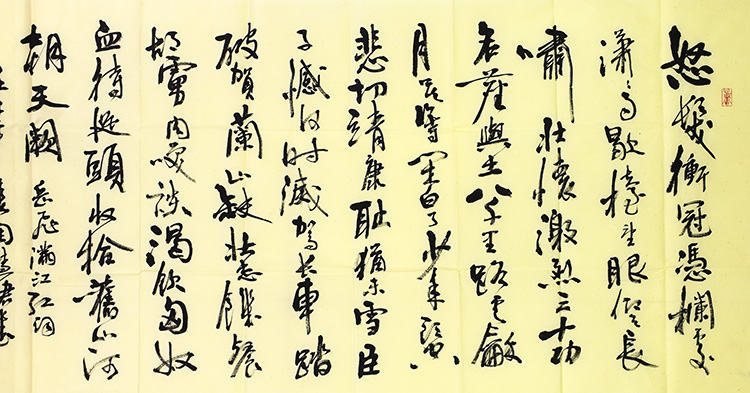 怒髮衝冠憑欄處
瀟〻雨歇擡望眼仰天長
嘯壯懷激烈三十功
名塵與土八千里路雲和
月莫等閒白了少年頭空
悲切靖康恥猶未雪臣
子憾何時滅駕長車踏
破賀蘭山缺壯志飢餐
胡虜肉笑談渴飲匈奴
血待從頭收拾舊山河
朝天闕 岳飛滿江紅詞